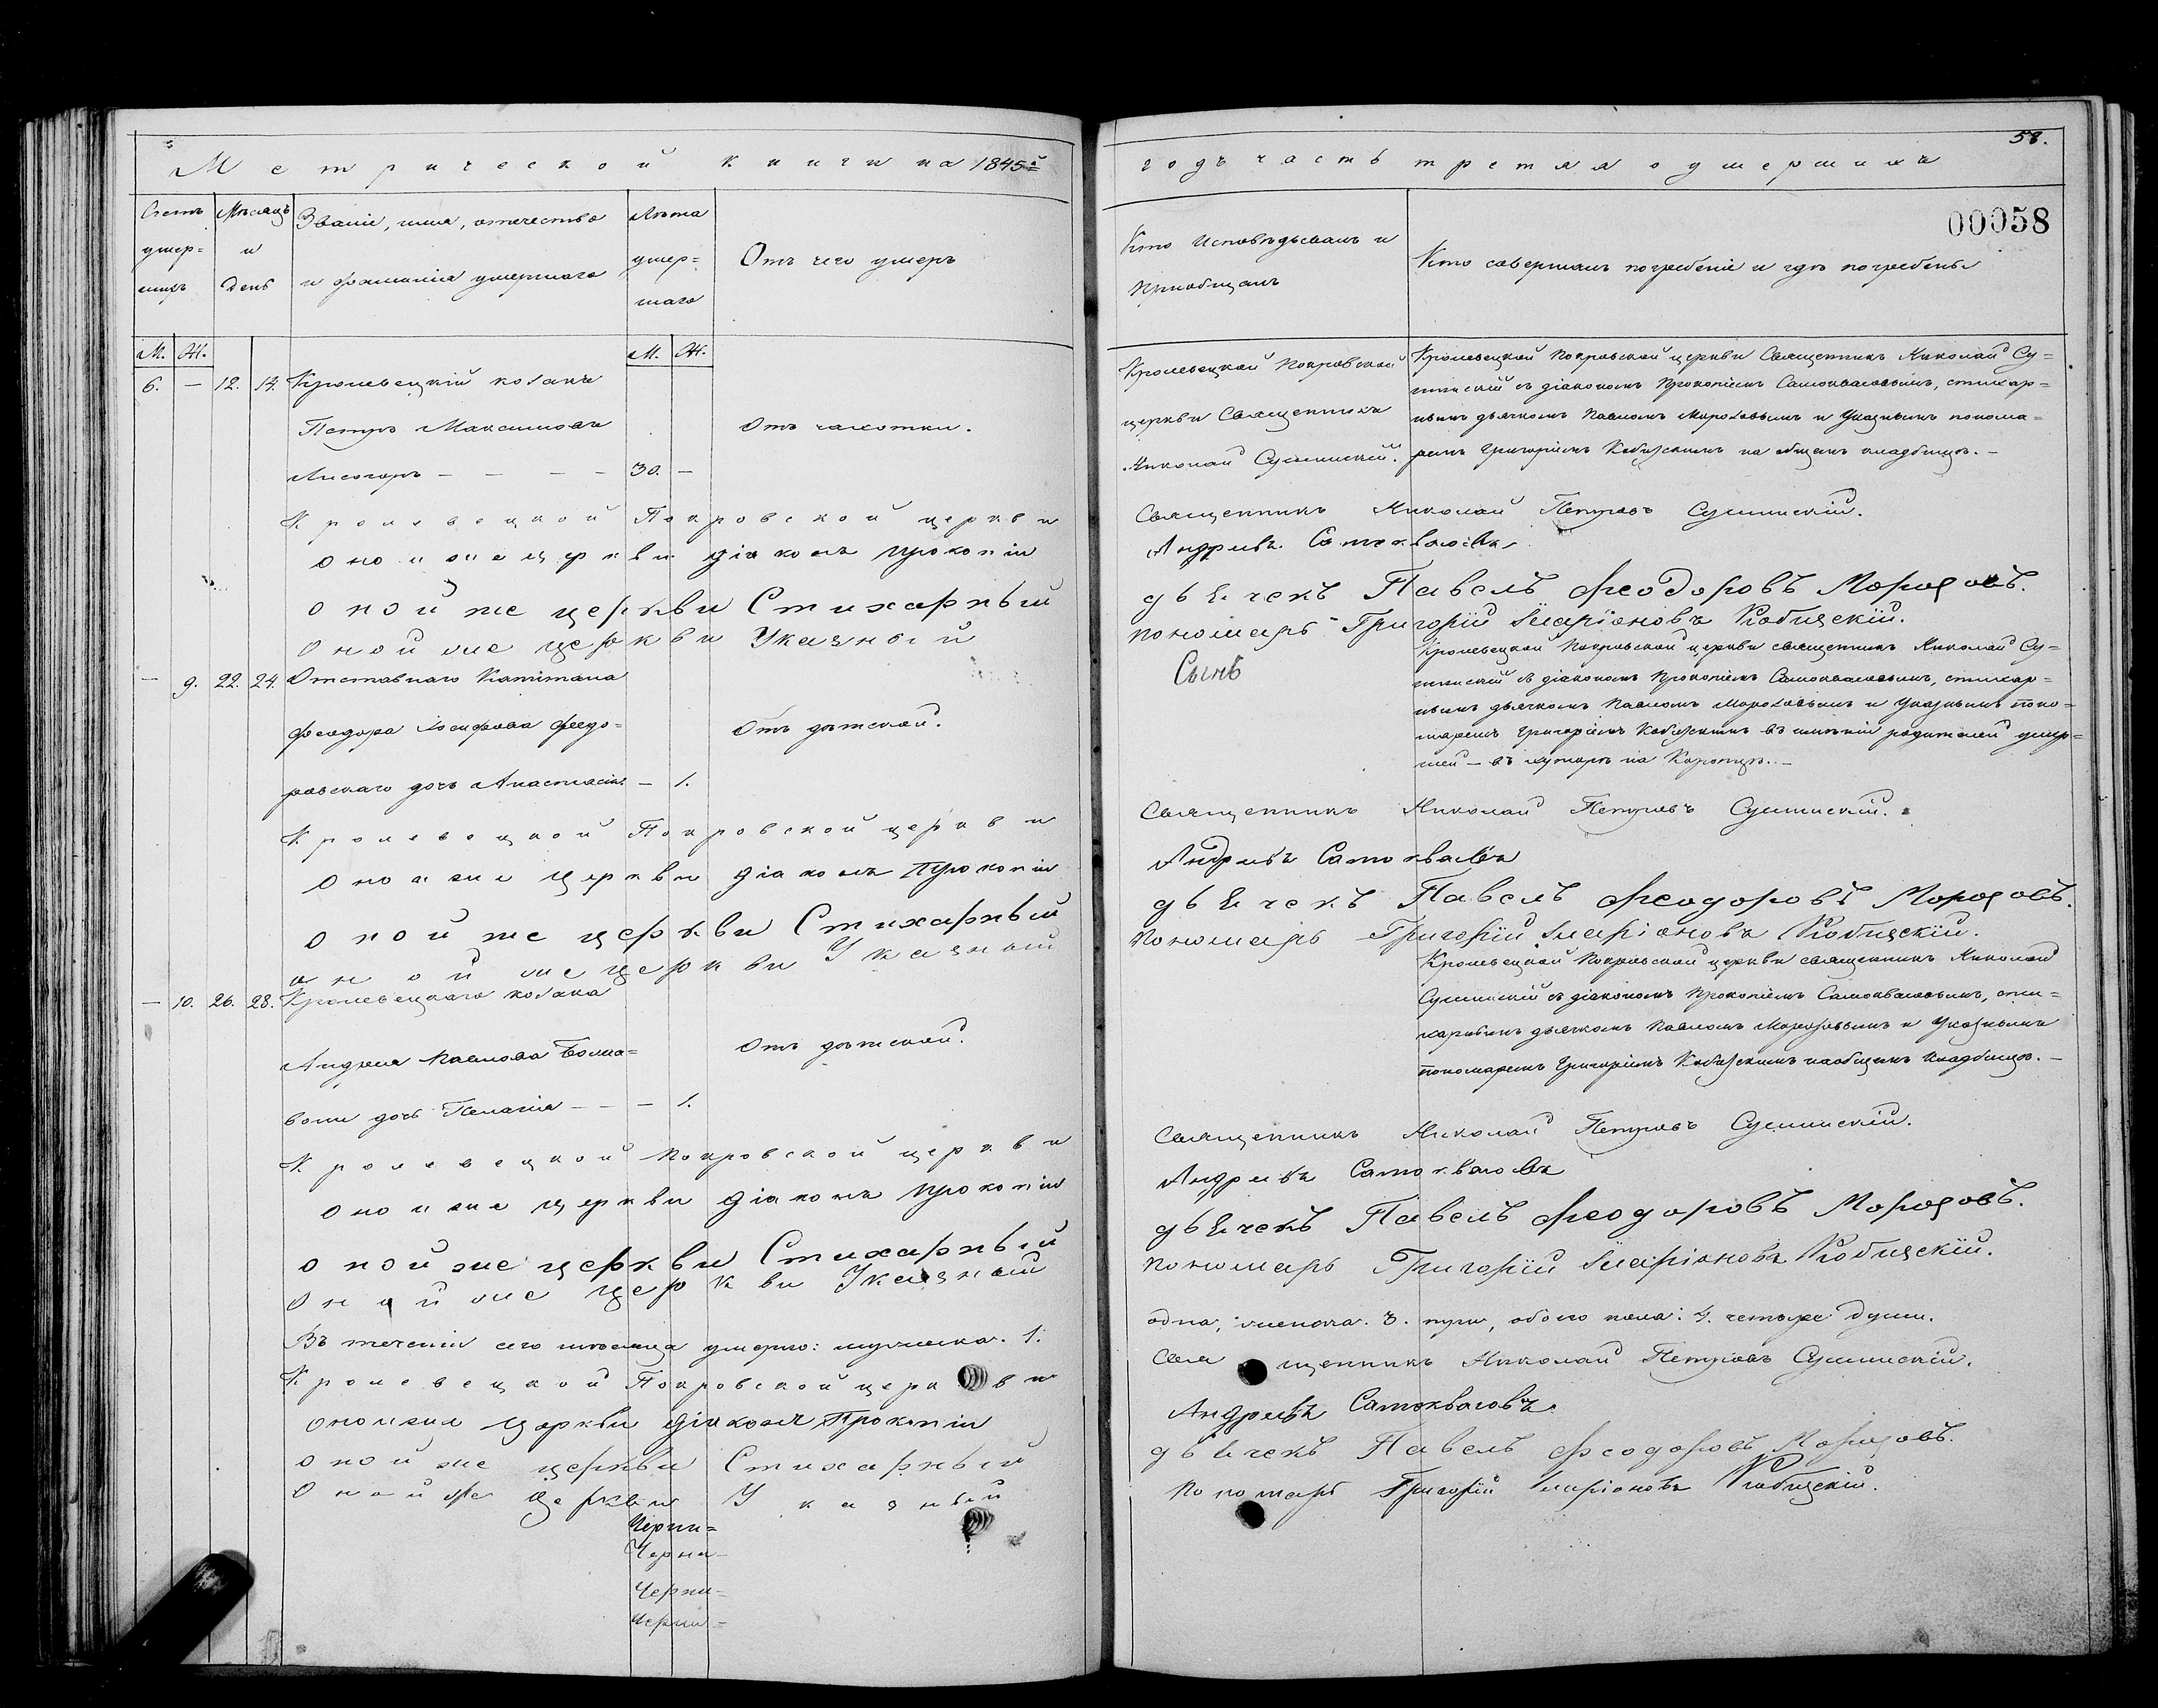 58.
Метрической книги на 1845й
годъ часть третяя о умершихъ
00058
Счетъ умер=шихъ
Мѣсяцъ и день
Званіе, имя, отечество
и фамилія умершаго
Лѣта умер=шаго
Отъ чего умеръ
Кто исповѣдывалъ и
пріобщалъ
Кто совершалъ погребеніе и гдѣ погребены
М. Ж.
М. Ж.
6. — 12. 14. Кролевецкій козакъ
Петръ Максимовъ
Лисогоръ — — — — 30. —
Отъ чахотки.
Кролевецкой Покровской
церкви Священникъ
Николай Сушинскій.
Кролевецкой Покровской церкви Священникъ Николай Су=
шинскій съ діакономъ Прокопіемъ Самоквасовымъ, стихар=
нымъ дьячкомъ Павломъ Морозовымъ и Указнымъ понома=
ремъ Григоріемъ Кобизскимъ на общемъ кладбищѣ. —
Кролевецкой Покровской церкви
Священникъ Николай Петровъ Сушинскій.
оной же церкви діаконъ Прокопій
Андреевъ Самоквасовъ
оной же церкви Стихарный
дьячекъ Павелъ Феодоровъ Морозовъ.
Оной же церкви Указный
пономарь Григорій Иларіоновъ Кобизскій.
Сынъ
— 9. 22. 24. Отставнаго Капитана
Феодора Іосифова Федо=
ровскаго дочь Анастасія. — 1.
Отъ дѣтской.
Кролевецкой Покровской церкви священникъ Николай Су=
шинскій съ діакономъ Прокопіемъ Самоквасовымъ, стихар=
нымъ дьячкомъ Павломъ Морозовымъ и Указнымъ поно=
маремъ Григоріемъ Кобизскимъ въ имѣніи родителей умер=
шей — въ хуторѣ на
Кролевецкой Покровской церкви
Священникъ Николай Петровъ Сушинскій.
Оной же церкви діаконъ Прокопій
Андреевъ Самоквасовъ
оной же церкви Стихарный
дьячекъ Павелъ Феодоровъ Морозовъ.
оной же церкви Указный
пономарь Григорій Иларіоновъ Кобизскій.
— 10. 26. 28. Кролевецкаго козака
Андрея Павлова
дочь Пелагія — — — 1.
Отъ дѣтской.
Кролевецкой Покровской церкви священникъ Николай
Сушинскій съ діакономъ Прокопіемъ Самоквасовымъ, сти=
харнымъ дьячкомъ Павломъ Морозовымъ и Указнымъ
пономаремъ Григоріемъ Кобизскимъ на общемъ кладбищѣ. —
Кролевецкой Покровской церкви
Священникъ Николай Петровъ Сушинскій.
оной же церкви діаконъ Прокопій
Андреевъ Самоквасовъ
оной же церкви Стихарный
дьячекъ Павелъ Феодоровъ Морозовъ.
Оной же церкви Указный
пономарь Григорій Иларіоновъ Кобизскій.
Въ теченіи сего мѣсяца умерло: мужеска. 1.
одна, женска. 3. три, обоего пола: 4. четыре души.
Кролевецкой Покровской церкви
Священникъ Николай Петровъ Сушинскій.
оной же церкви діаконъ Прокопій
Андреевъ Самоквасовъ.
оной же церкви Стихарный
дьячекъ Павелъ Феодоровъ Морозовъ.
Оной же Церкви Указный
Пономарь Григорій Иларіоновъ Кобизскій.
Черни=
Черни—
Черни=
Черни=